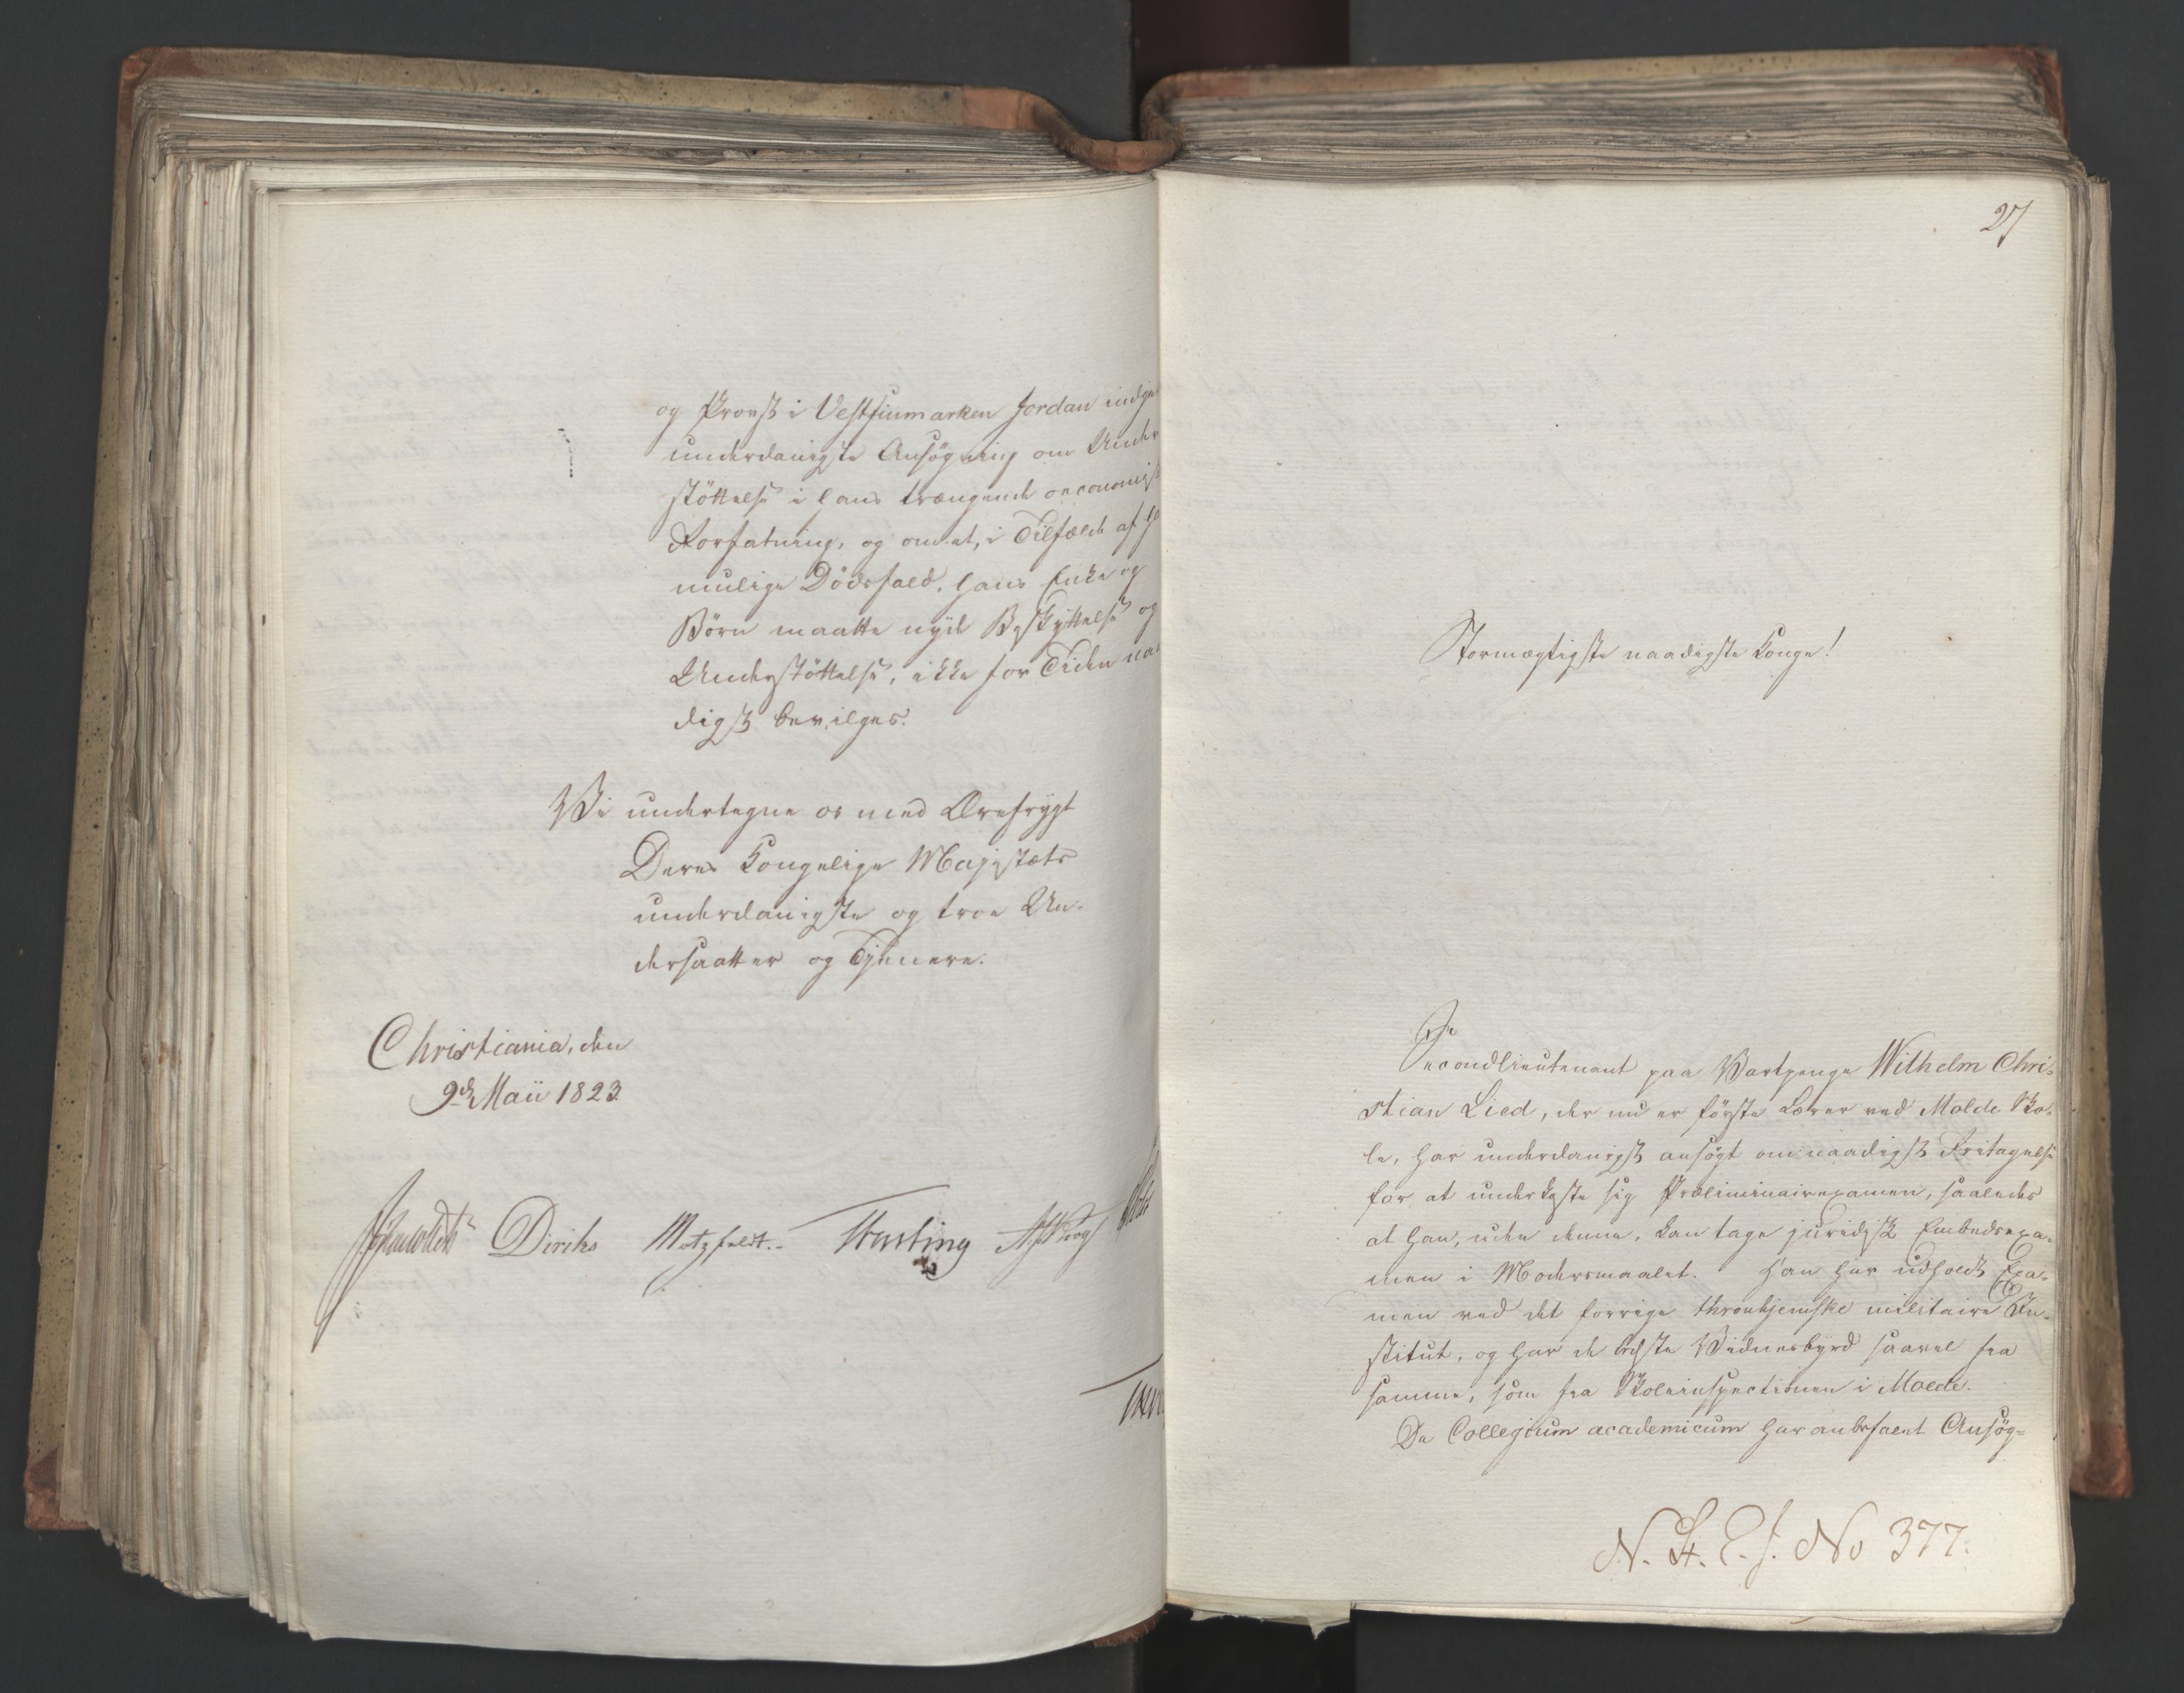 og Provst i Vestfinmarken Jordan indgiv
underdanigste Ansøgning om Under
støttelse i hans trængende oeconomisk
Forfatning, og om at, i Tilfælde af ha
mulige Dødsfald, hans Enke og
Børn maatte nyde Beskyttelse og
Understøttelse, ikke for Tiden naa
digst bevilges.
Vi undertegne os med Ærefrygt
Deres Kongelige Majestæts
underdanigste og troe Un-
dersaatter og Tjenere.
Christiania, den
9de Maii 1823.
Diriks Motzfeldt. Krog
27
Stormægtigste naadigste Konge!
Secondlieutenant paa Vartpenge Wilhelm Chri-
stian Lied, der nu er første Lærer ved Molde Sko-
le, har underdanigst ansøgt om naadigst Fritagelse
for at underkaste sig Præliminairexamen, saaledes
at han, uden denne, kan tage juridisk Embedsexa-
men i Modersmaalet. Han har udholdt Exa-
men ved det forrige throndhjemske militaire In-
stitut, og har de bedste Vidnesbyrd saavel fra
samme, som fra Skoleinspectionen i Molde.
Da Collegium academicum har anbefalet Ansøg-
N. St. E. J. No 377.